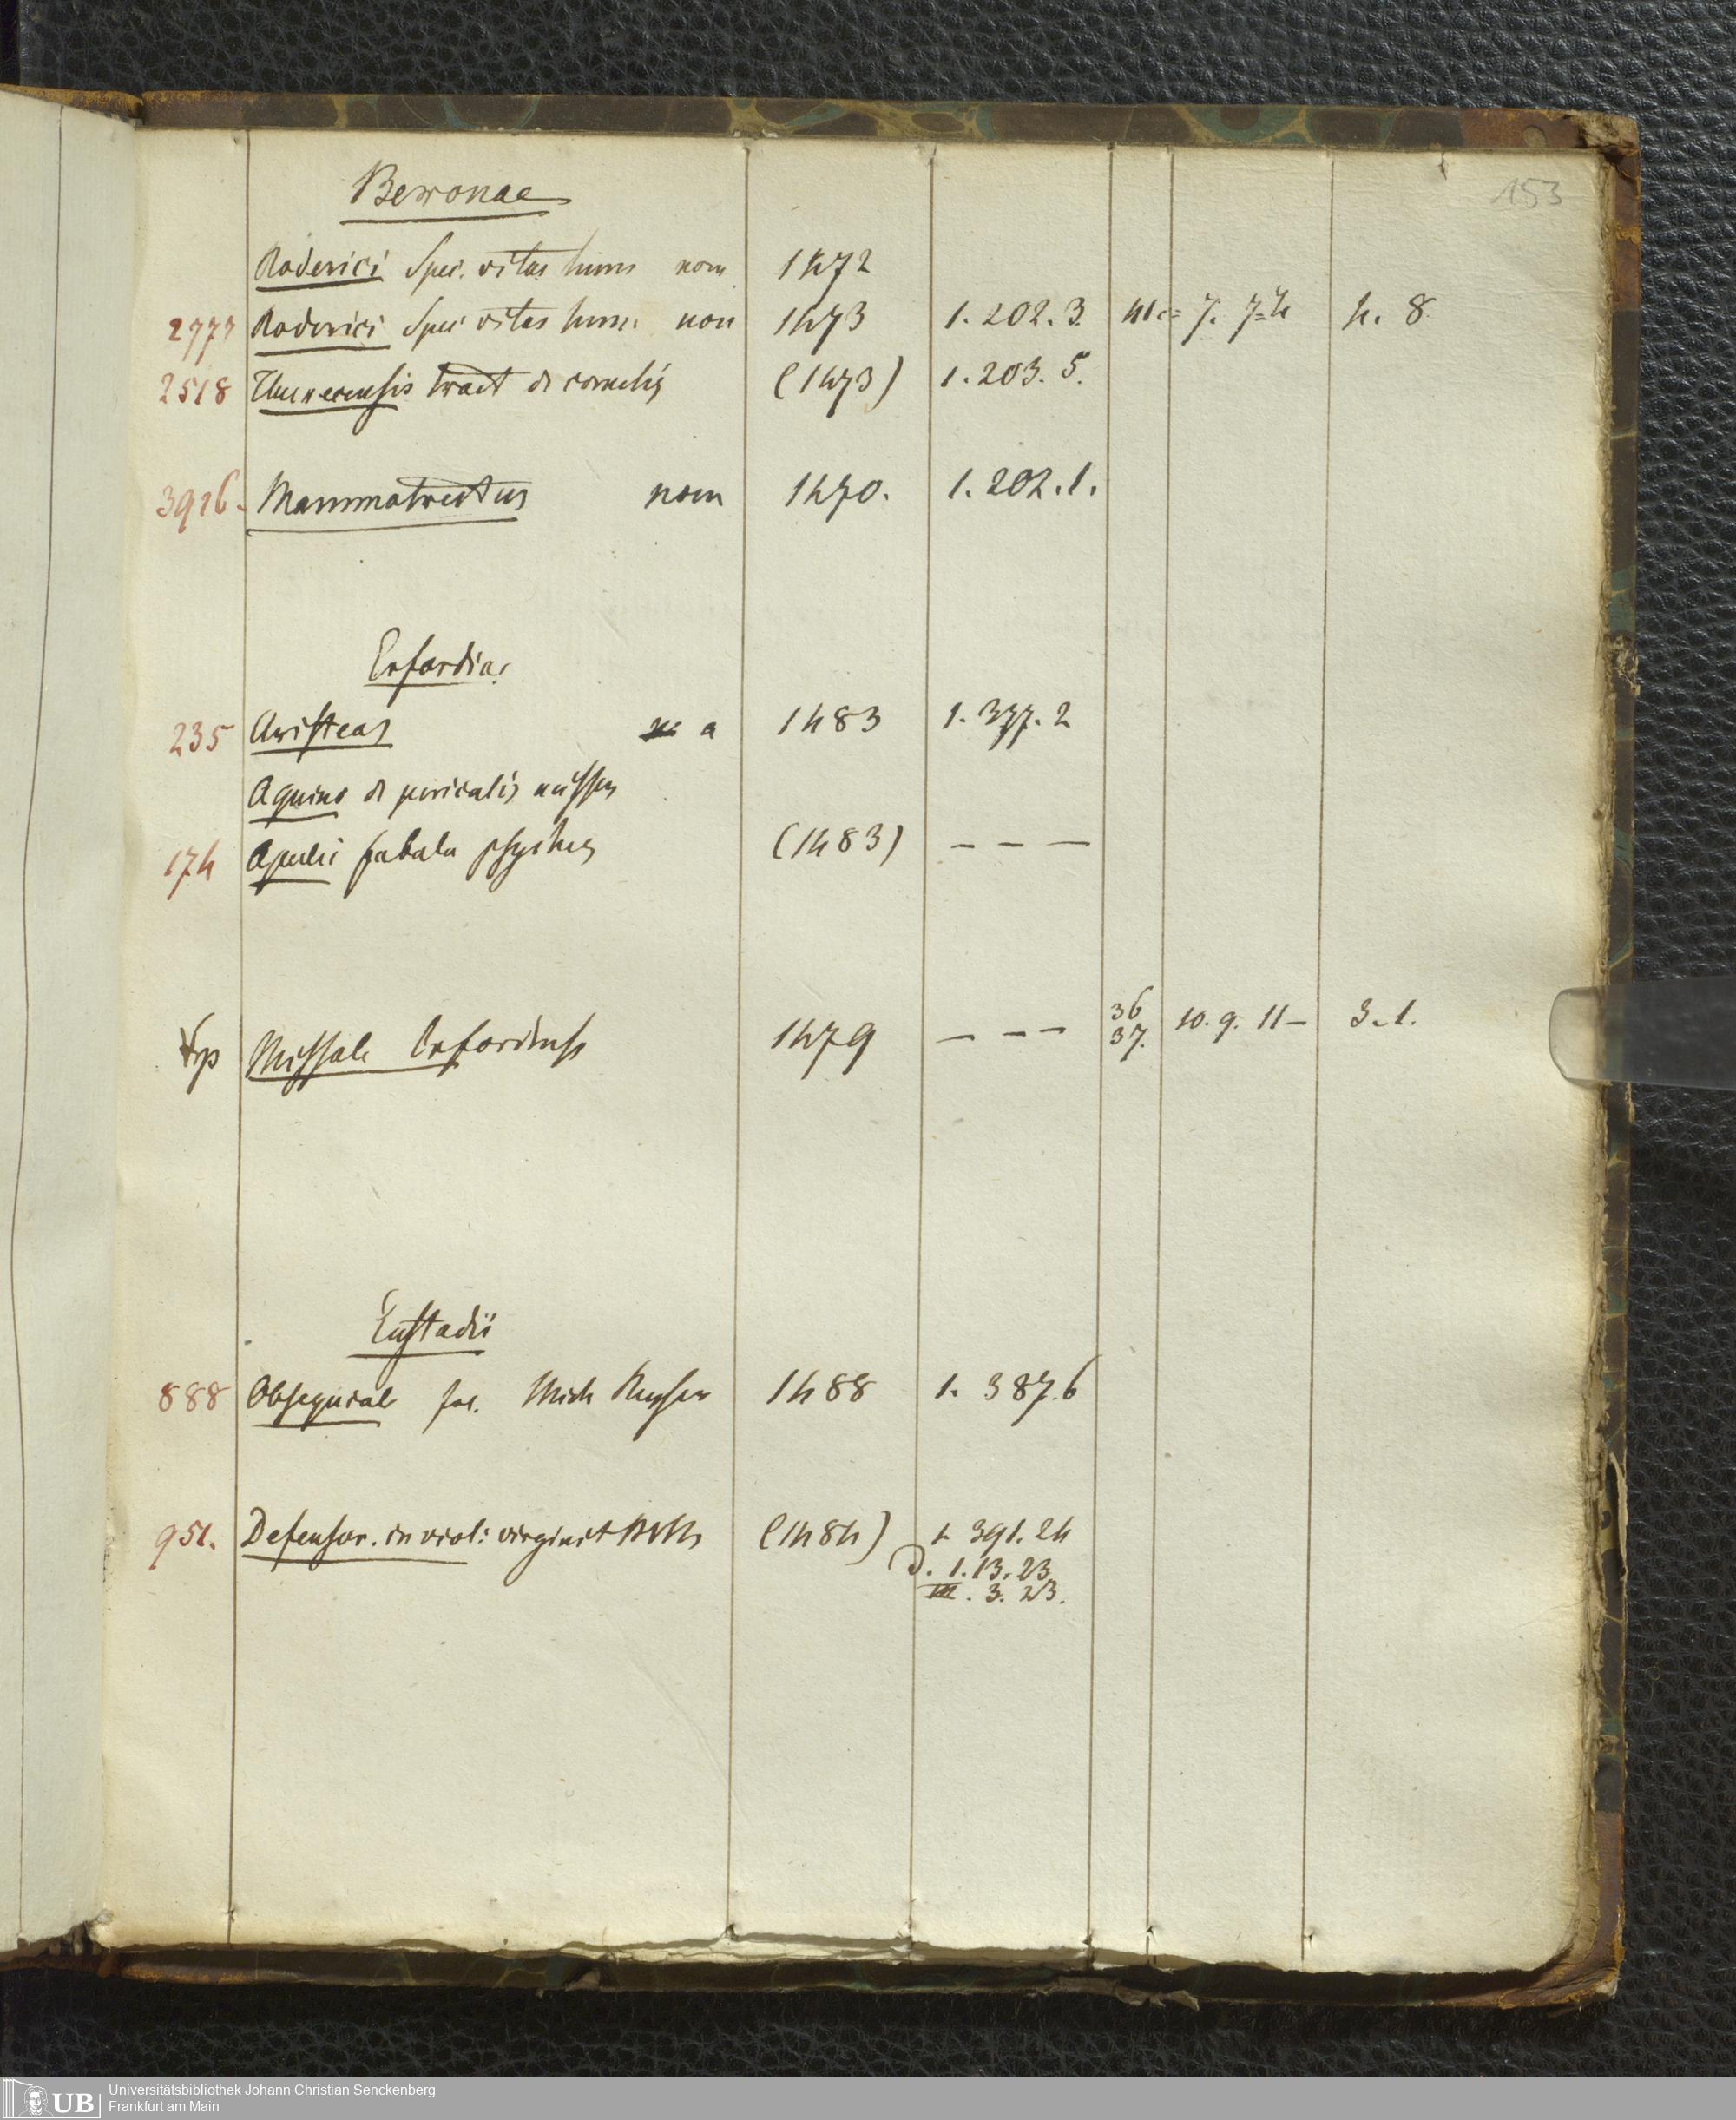 153
Beronae
Roderici Spec. vitae hum nom 1472
2777 Roderici Spec vitae hum. non 1473 1.202.3. 7. 7=4 4. 8.
2518 Thurecensis tract de cometis (1473) 1.203.5.
3916. Mammotrectus nom 1470. 1.202.1.
Erfordiae
235 Aristeas a 1483 1.377.2
Aquino de periculis missae
174 Apulei fabula psyches (1483) – – –
Missale Erfordense 1479 – – – 36 37. 10. 9. 11– 3.1.
Eustadii
888 Obsequiale per Mich Reyser 1488 1. 387.6
951. Defensor. in viol: virginit (1484) 1. 391.24
D. 1.13.23.
III. 3. 23.
UB
Universitätsbibliothek Johann Christian Senckenberg
Frankfurt am Main